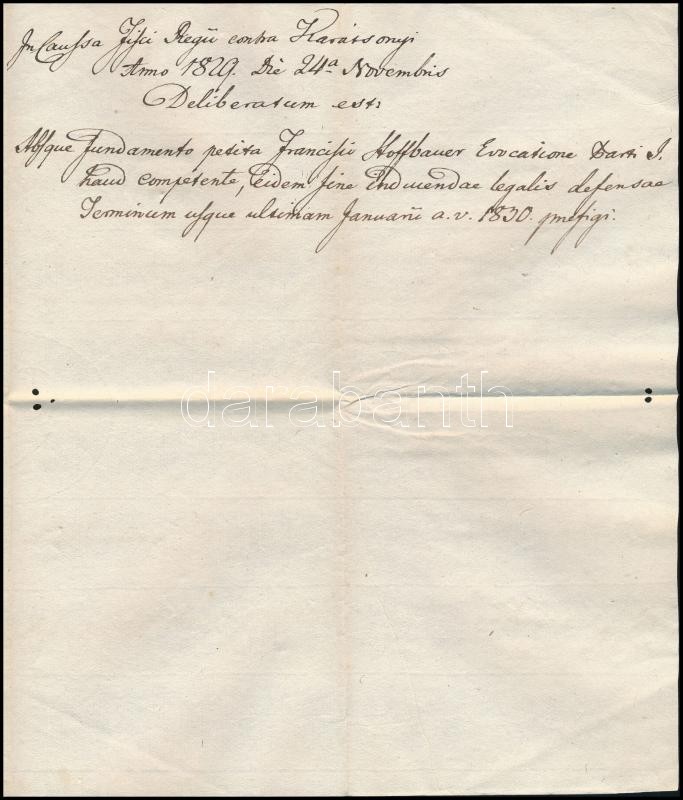 In Caussa Fisci Regii contra Karátsonyi
Anno 1829. Die 24a Novembris
Deliberatum est:
Absque fundamento petita Francisci Hoffbauer Evocatione Parti I.
haud competente, eidem fine Enducendae legalis defensae
Terminum usque ultimam Januarii a. v. 1830. prefigi.
darabanth